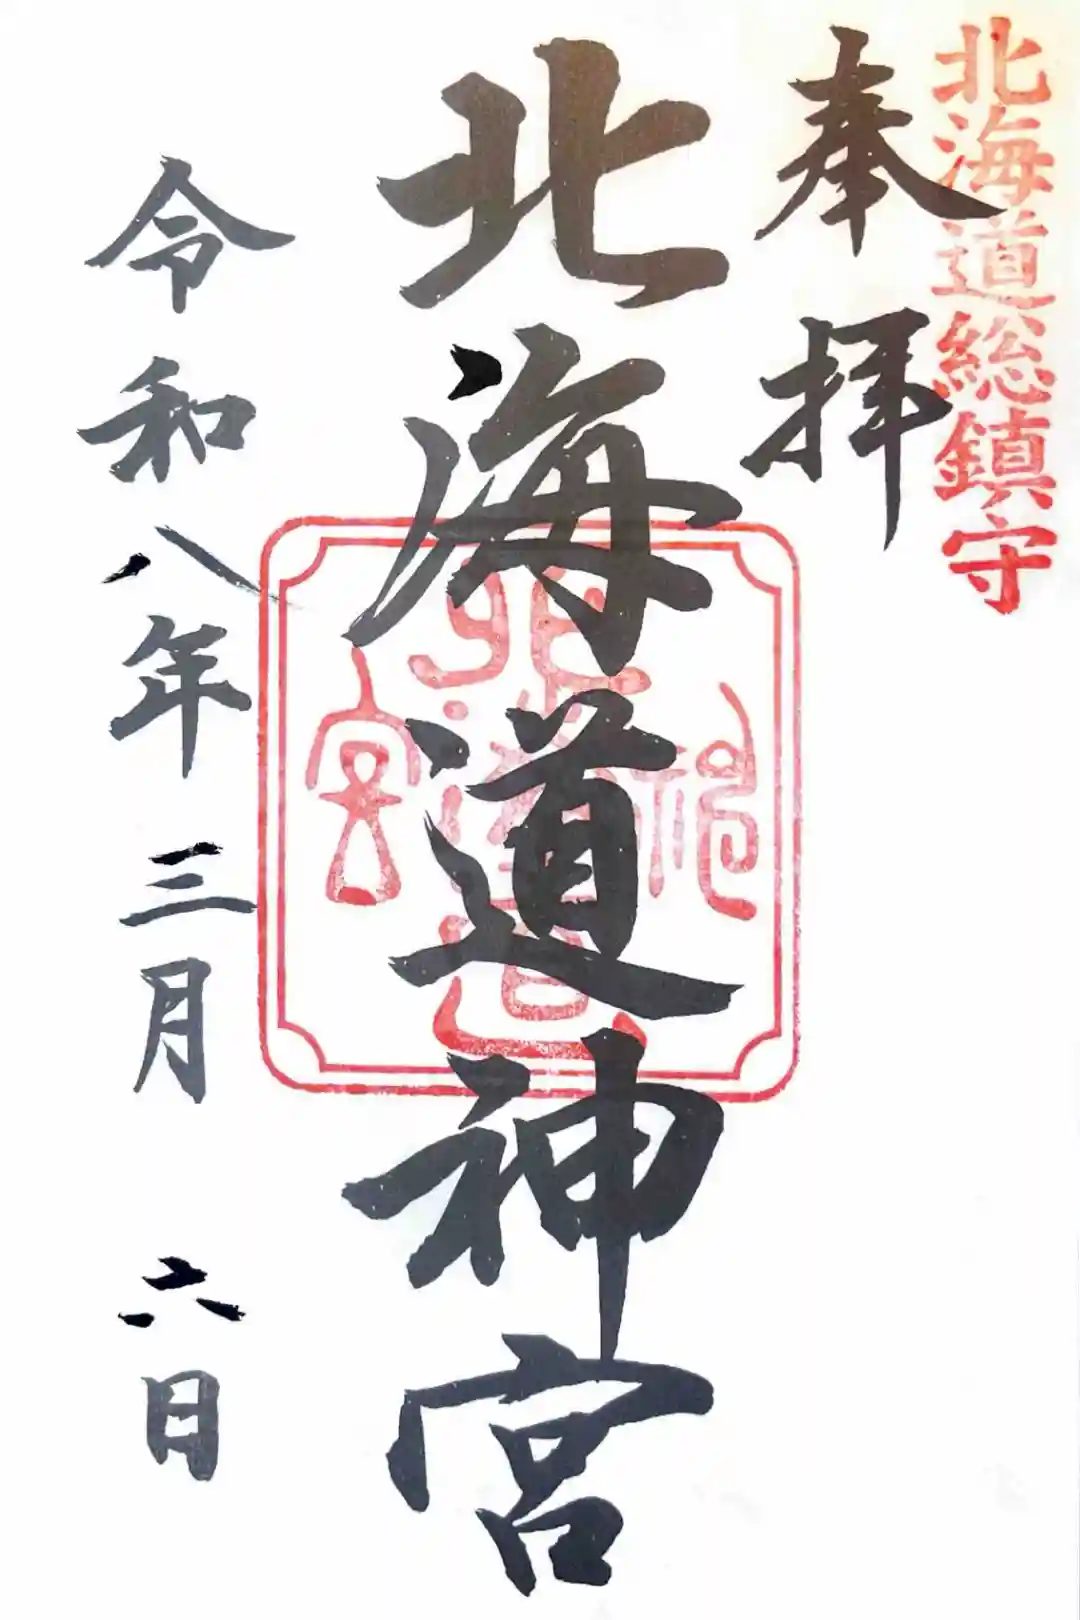 北海道総鎮守
奉拝
北海道神宮
令和八年三月六日